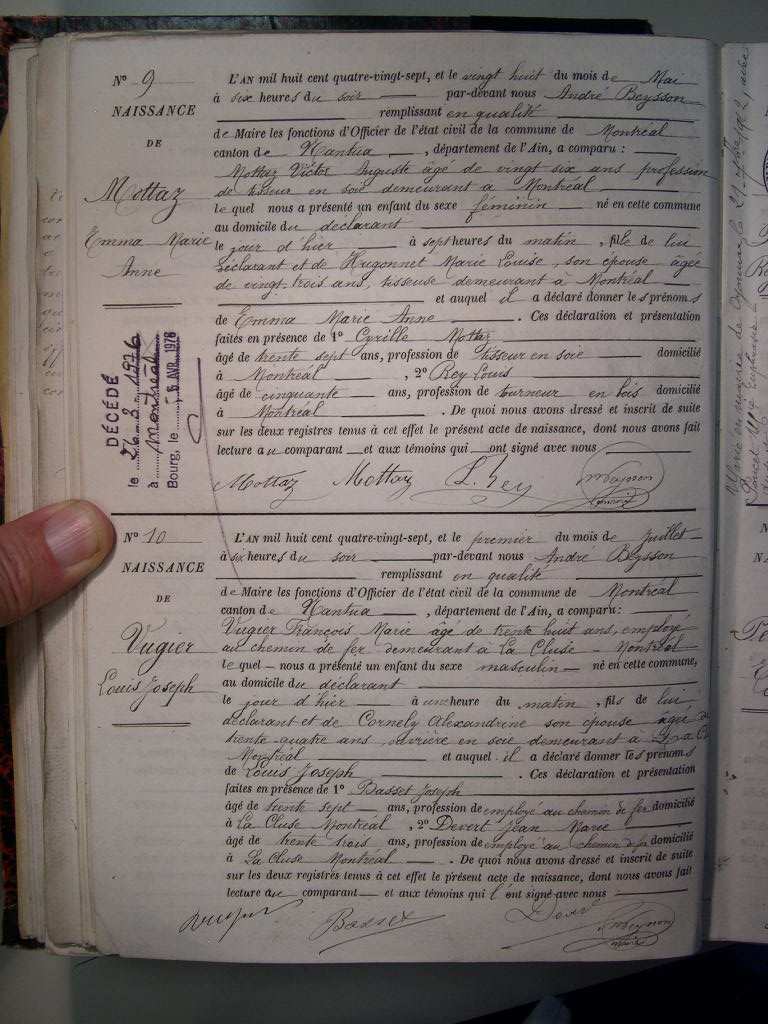 N° 9
NAISSANCE
DE
Mottaz
Emma Marie
Anne
DÉCÉDÉ
le 26.3.1976
à Montréal
Bourg, le 6 AVR. 1976
L'AN mil huit cent quatre-vingt-sept, et le vingt huit du mois de Mai
à six heures du soir par-devant nous André Beysson
remplissant en qualité
de Maire les fonctions d'Officier de l'état civil de la commune de Montréal
canton de Nantua, département de l'Ain, a comparu :
Mottaz Victor Auguste âgé de vingt six ans profession
de tisseur en soie demeurant à Montréal
le quel nous a présenté un enfant du sexe féminin né en cette commune
au domicile du déclarant
le jour d'hier à sept heures du matin, fille de lui
déclarant et de Hugonnet Marie Louise, son épouse âgée
de vingt-trois ans, tisseuse demeurant à Montréal
et auquel il a déclaré donner les prénoms
de Emma Marie Anne. Ces déclaration et présentation
faites en présence de 1° Cyrille Mottaz
âgé de trente sept ans, profession de tisseur en soie domicilié
à Montréal, 2° Rey Louis
âgé de cinquante ans, profession de tourneur en bois domicilié
à Montréal. De quoi nous avons dressé et inscrit de suite
sur les deux registres tenus à cet effet le présent acte de naissance, dont nous avons fait
lecture au comparant et aux témoins qui ont signé avec nous
Mottaz Mottaz L. Rey
N° 10
NAISSANCE
DE
Vugier
Louis Joseph
L'AN mil huit cent quatre-vingt-sept, et le premier du mois de Juillet
à six heures du soir par-devant nous André Beysson
remplissant en qualité
de Maire les fonctions d'Officier de l'état civil de la commune de Montréal
canton de Nantua, département de l'Ain, a comparu :
Vugier François Marie âgé de trente huit ans, employé
au chemin de fer demeurant à La Cluse - Montréal
le quel nous a présenté un enfant du sexe masculin né en cette commune,
au domicile du déclarant
le jour d'hier à une heure du matin, fils de lui
déclarant et de Cornely Alexandrine son épouse âgée de
trente-quatre ans, ouvrière en soie, demeurant à La
Montréal et auquel il a déclaré donner les prénoms
de Louis Joseph. Ces déclaration et présentation
faites en présence de 1° Basset Joseph
âgé de trente sept ans, profession de employé au chemin de fer domicilié
à La Cluse Montréal, 2° Devert Jean Marie
âgé de trente trois ans, profession de employé au chemin de fer domicilié
à La Cluse Montréal. De quoi nous avons dressé et inscrit de suite
sur les deux registres tenus à cet effet le présent acte de naissance, dont nous avons fait
lecture au comparant et aux témoins qui l'ont signé avec nous
Basset